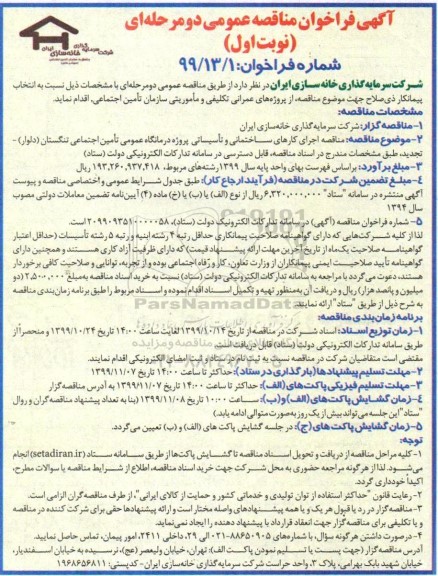 آگهی فراخوان مناقصه عمومی دومرحله‌ای
(نوبت اول)
شماره فراخوان: ۹۹/۱۳/۱
شرکت سرمایه گذاری خانه سازی ایران
شرکت سرمایه گذاری خانه سازی ایران در نظر دارد از طریق مناقصه عمومی دومرحله‌ای با مشخصات ذیل نسبت به انتخاب
پیمانکار ذی‌صلاح جهت موضوع مناقصه، از پروژه‌های عمرانی تکلیفی و مأموریتی سازمان تأمین اجتماعی، اقدام نماید.
مشخصات مناقصه:
۱- مناقصه گزار: شرکت سرمایه گذاری خانه‌سازی ایران
۲- موضوع مناقصه: مناقصه اجرای کارهای ساختمانی و تأسیساتی پروژه درمانگاه عمومی تأمین اجتماعی تنگستان (دلوار) -
تجدید، طبق مشخصات مندرج در اسناد مناقصه، قابل دسترسی در سامانه تدارکات الکترونیکی دولت (ستاد)
۳- مبلغ برآورد: بر اساس فهرست بهای واحد پایه سال ۱۳۹۹ رشته‌های مربوط، ۱۹۳,۲۶۰,۹۳۷,۴۱۸ ریال
۴- مبلغ تضمین شرکت در مناقصه (فرآیند ارجاع کار): طبق جدول شرایط عمومی و اختصاصی مناقصه و پیوست
آگهی منتشره در سامانه "ستاد" ۶,۳۲۰,۰۰۰,۰۰۰ ریال از نوع (الف) یا (ب) یا (خ) ماده (۴) آیین‌نامه تضمین معاملات دولتی مصوب
سال ۱۳۹۴
۵- شماره فراخوان مناقصه (آگهی) در سامانه تدارکات الکترونیک دولت (ستاد)، ۲۰۹۹۰۹۳۵۱۰۰۰۰۰۵۸ است.
لذا از کلیه شرکت‌هایی که دارای گواهینامه صلاحیت پیمانکاری حداقل رتبه ۴ رشته ابنیه و رتبه ۵ رشته تأسیسات (حداقل اعتبار
گواهینامه صلاحیت یک‌ماه از تاریخ آخرین مهلت ارائه پیشنهاد قیمت) که دارای ظرفیت آزاد کاری هستند و همچنین دارای
گواهینامه تأیید صلاحیت ایمنی پیمانکاران از وزارت تعاون، کار و رفاه اجتماعی بوده و از تجربه، توانایی و صلاحیت کافی برخوردار
هستند، دعوت می‌گردد با مراجعه به سامانه تدارکات الکترونیکی دولت (ستاد) نسبت به خرید اسناد مناقصه به‌مبلغ ۲,۵۰۰,۰۰۰ (دو
میلیون و پانصد هزار) ریال و دریافت آن به‌منظور تهیه و تکمیل اسناد اقدام نموده و اسناد مربوط را طبق برنامه زمان‌بندی مناقصه
به شرح ذیل از طریق "ستاد" ارائه نمایند.
برنامه زمان‌بندی مناقصه:
۱- زمان توزیع اسناد: اسناد شرکت در مناقصه از تاریخ ۱۳۹۹/۱۰/۱۴ لغایت ساعت ۱۴:۰۰ تاریخ ۱۳۹۹/۱۰/۲۴ و منحصراً از
طریق سامانه تدارکات الکترونیکی دولت (ستاد) قابل دریافت است.
مقتضی است متقاضیان شرکت در مناقصه نسبت به ثبت نام در ستاد و ثبت امضای الکترونیکی اقدام نمایند.
۲- مهلت تسلیم پیشنهادها (بارگذاری در ستاد): حداکثر تا ساعت ۱۴:۰۰ تاریخ ۱۳۹۹/۱۱/۰۷
۳- مهلت تسلیم فیزیکی پاکت‌های (الف): حداکثر تا ساعت ۱۴:۰۰ تاریخ ۱۳۹۹/۱۱/۰۷ به آدرس مناقصه گزار
۴- زمان گشایش پاکت‌های (الف) و (ب): ساعت ۱۰:۰۰ تاریخ ۱۳۹۹/۱۱/۰۸ (بنا به تعداد پیشنهاد مناقصه گران و روال
"ستاد" این جلسه می‌تواند بیش از یک روز به‌صورت متوالی ادامه یابد.)
۵- زمان گشایش پاکت‌های (ج): در جلسه گشایش پاکت های (الف) و (ب) تعیین می‌گردد.
توجه:
۱- کلیه مراحل مناقصه از دریافت و تحویل اسناد مناقصه تا گشایش پاکت‌ها از طریق سامانه ستاد (setadiran.ir) انجام
می‌شود. لذا از هرگونه مراجعه حضوری به محل شرکت جهت خرید اسناد مناقصه، اطلاع از شرایط مناقصه یا سوالات مطرح،
اکیداً خودداری گردد.
۲- رعایت قانون "حداکثر استفاده از توان تولیدی و خدماتی کشور و حمایت از کالای ایرانی"، از طرف مناقصه گران الزامی است.
۳- مناقصه گزار در رد یا قبول هر یک و یا همه پیشنهادهای واصله مختار است و ارائه پیشنهادها حقی برای شرکت کننده در مناقصه
و یا تکلیفی برای مناقصه گزار جهت انعقاد قرارداد با پیشنهاد دهنده را ایجاد نمی‌نماید.
۴- درصورت داشتن هرگونه سؤال، با شماره‌های ۸۸۶۵۰۹۰۵-۰۲۱ الی ۲۹، داخلی ۲۴۱۱، امور پیمان، تماس حاصل نمایید.
آدرس مناقصه گزار (جهت پست یا تسلیم نمودن پاکت الف): تهران، خیابان ولیعصر (عج)، نرسیده به خیابان اسفندیار،
خیابان شهید بابک بهرامی، پلاک ۳، واحد حراست شرکت سرمایه‌گذاری خانه‌سازی ایران - کدپستی: ۱۹۶۸۶۵۶۸۱۱
ParsNamadData